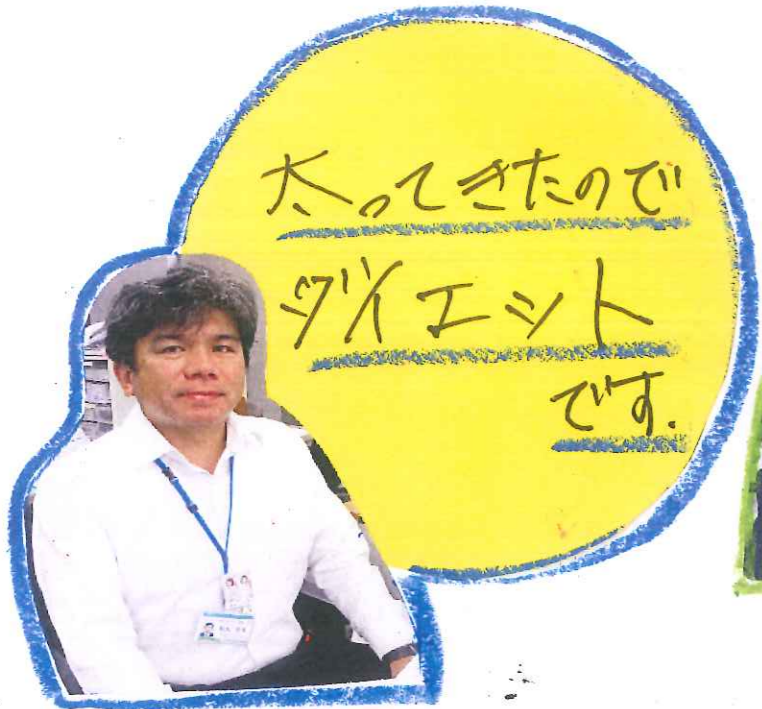 太ってきたので
ダイエット
です.